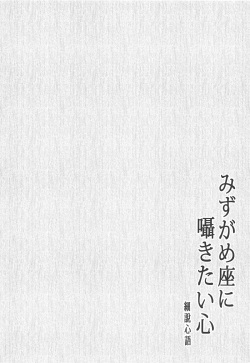 みずがめ座に
囁きたい心
細説心語